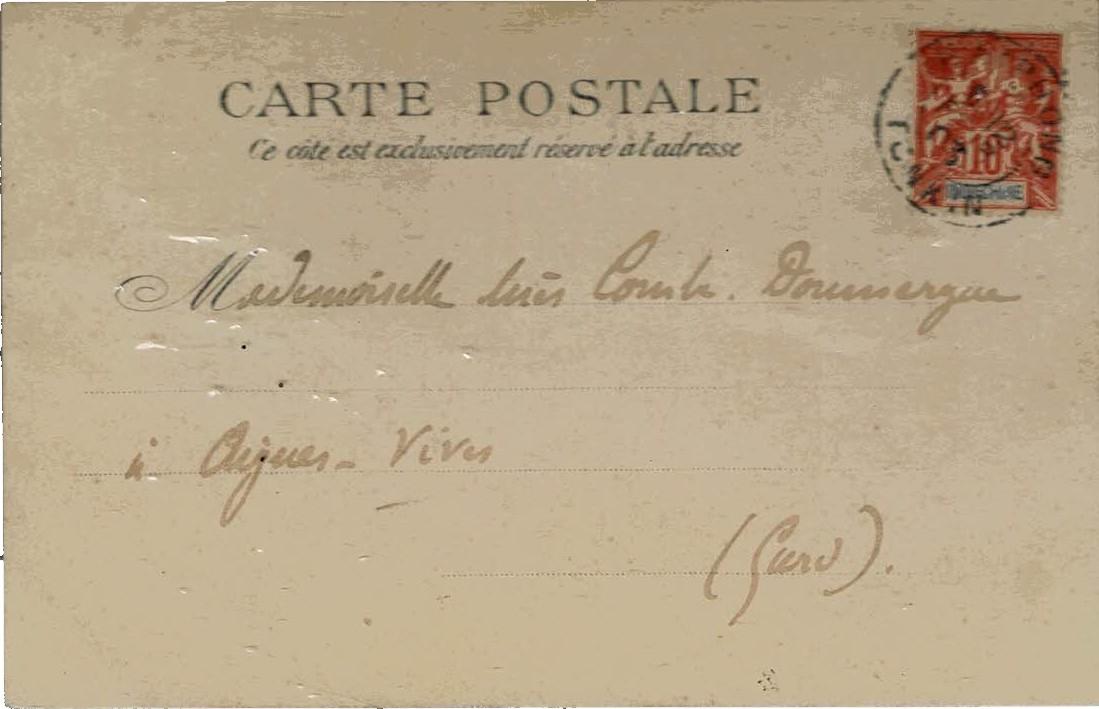 CARTE POSTALE
Ce côté est exclusivement réservé à l'adresse
10
INDO-CHINE
TONKIN
Mademoiselle Inès Comte. Doumergue
à Aigues-Vives
(Gard).